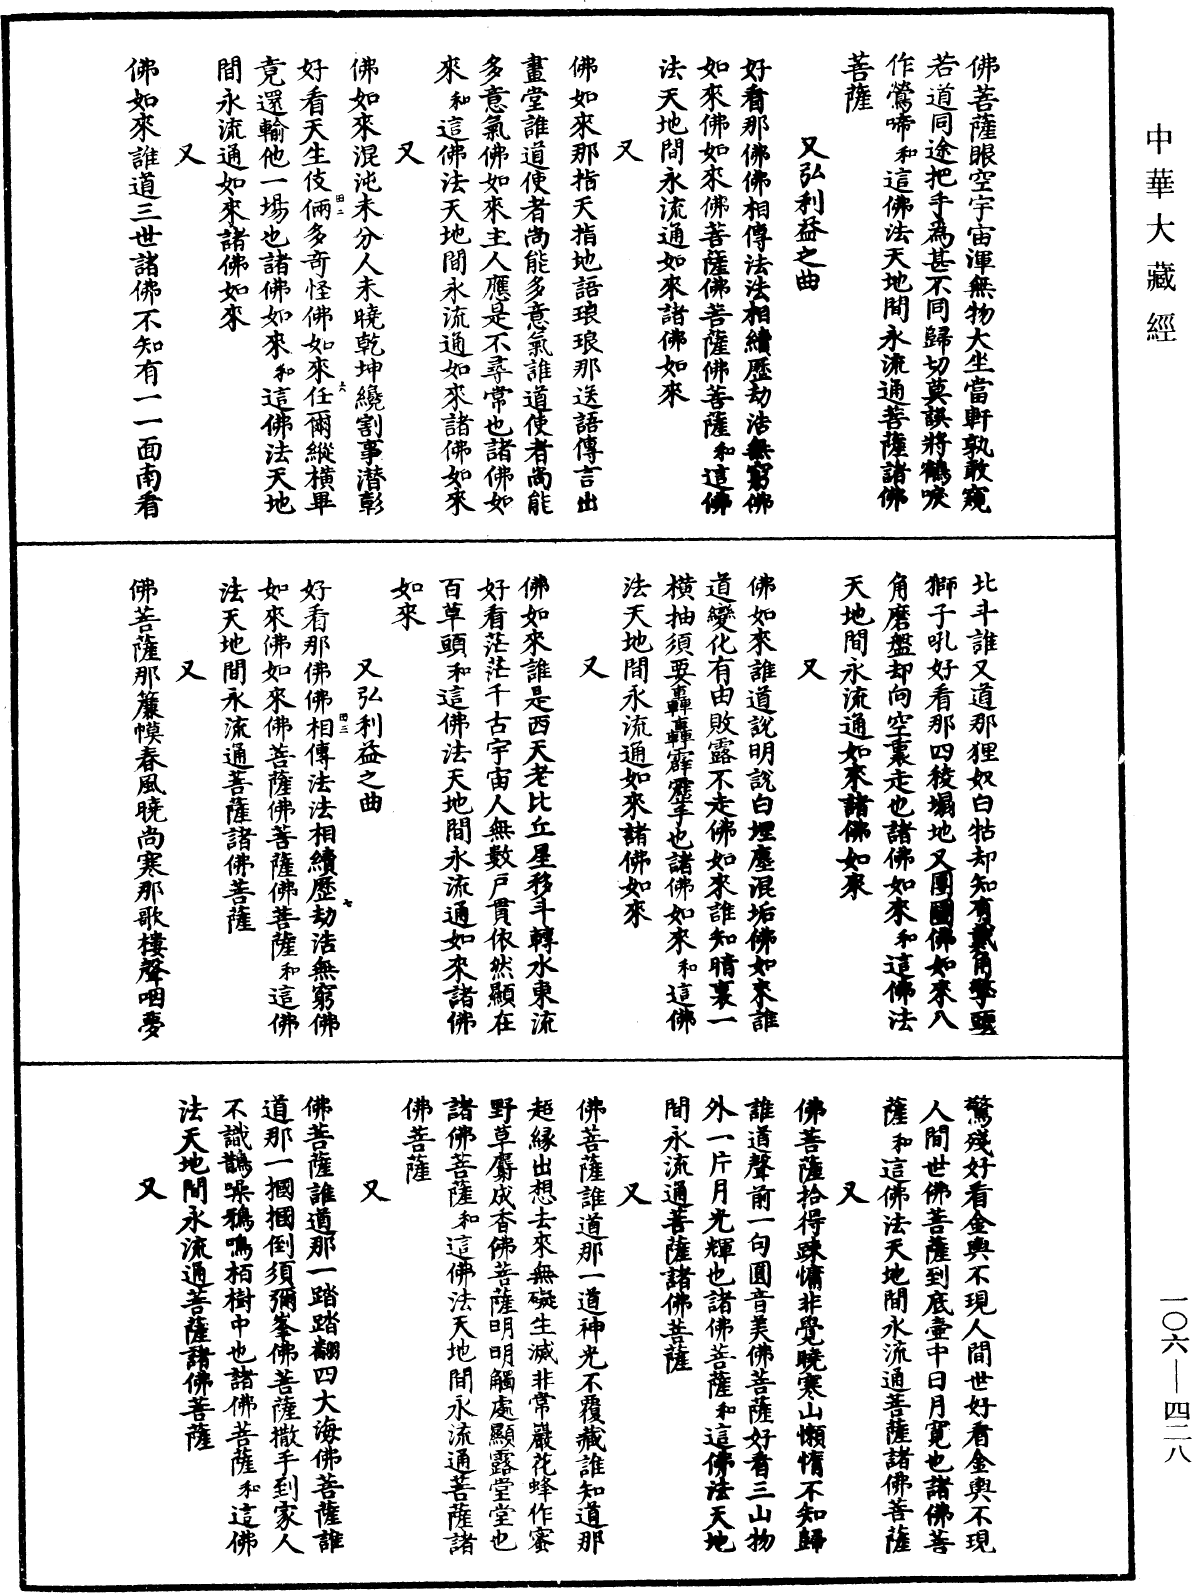 中華大藏經
佛菩薩眼空宇宙渾無物大坐當軒孰敢窺
若道同途把手為甚不同歸切莫誤將鶴唳
作鶯啼和這佛法天地間永流通菩薩諸佛
菩薩
又弘利益之曲
好看那佛佛相傳法法相續歷劫浩無窮佛
如來佛如來佛菩薩佛菩薩佛菩薩和這佛
法天地間永流通如來諸佛如來
又
佛如來那指天指地語琅琅那送語傳言出
畫堂誰道使者尚能多意氣誰道使者尚能
多意氣佛如來主人應是不尋常也諸佛如
來和這佛法天地間永流通如來諸佛如來
又
佛如來混沌未分人未曉乾坤纔割事潛彰
好看天生伎倆多奇怪佛如來任爾縱橫畢
竟還輸他一場也諸佛如來和這佛法天地
間永流通如來諸佛如來
又
佛如來誰道三世諸佛不知有一一面南看
北斗誰又道那狸奴白牯却知有戴角擎頭
獅子吼好看那四稜塌地又團圞佛如來八
角磨盤却向空裏走也諸佛如來和這佛法
天地間永流通如來諸佛如來
又
佛如來誰道說明說白埋塵混垢佛如來誰
道變化有由敗露不走佛如來誰知暗裏一
橫抽須要轟轟霹靂手也諸佛如來和這佛
法天地間永流通如來諸佛如來
又
佛如來誰是西天老比丘星移斗轉水東流
好看茫茫千古宇宙人無數戶貫依然顯在
百草頭和這佛法天地間永流通如來諸佛
如來
又弘利益之曲
好看那佛佛相傳法法相續歷劫浩無窮佛
如來佛如來佛菩薩佛菩薩佛菩薩和這佛
法天地間永流通菩薩諸佛菩薩
又
佛菩薩那簾幙春風曉尚寒那歌樓聲咽夢
驚殘好看金輿不現人間世好看金輿不現
人間世佛菩薩到底壺中日月寬也諸佛菩
薩和這佛法天地間永流通菩薩諸佛菩薩
又
佛菩薩拾得踈慵非覺曉寒山懶惰不知歸
誰道聲前一句圓音美佛菩薩好看三山物
外一片月光輝也諸佛菩薩和這佛法天地
間永流通菩薩諸佛菩薩
又
佛菩薩誰道那一道神光不覆藏誰知道那
超緣出想去來無礙生滅非常巖花蜂作蜜
野草麝成香佛菩薩明明觸處顯露堂堂也
諸佛菩薩和這佛法天地間永流通菩薩諸
佛菩薩
又
佛菩薩誰道那一踏踏翻四大海佛菩薩誰
道那一摑摑倒須彌峯佛菩薩撒手到家人
不識鵲噪鴉鳴栢樹中也諸佛菩薩和這佛
法天地間永流通菩薩諸佛菩薩
又
一〇六—四二八